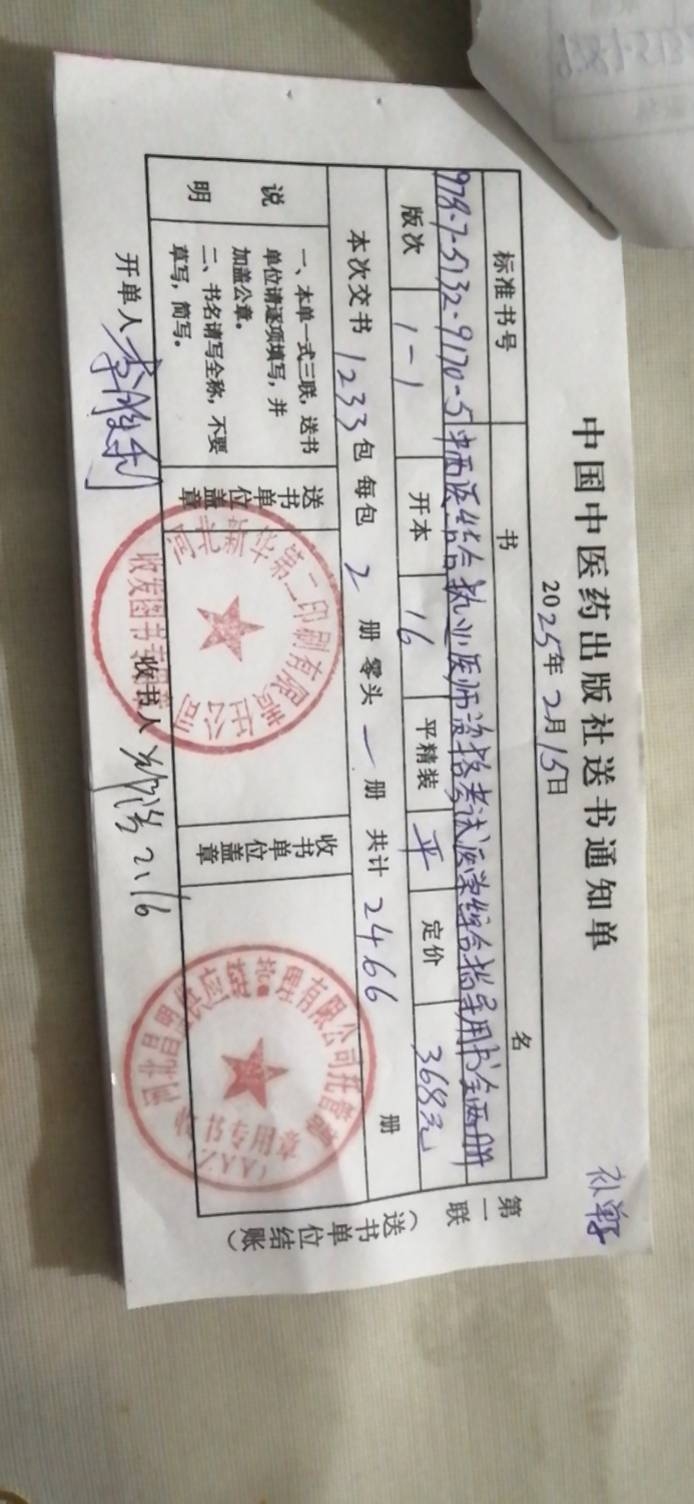 中国中医药出版社送书通知单
2025年2月15日
标准书号 书名
978-7-5132-9170-5 中西医结合执业医师资格考试医学综合指导用书全两册
版次 1-1 开本 16 平精装 平 定价 368元
本次交书 1233 包 每包 2 册 零头 一 册 共计 2466 册
说明
一、本单一式三联，送书
单位请逐项填写，并
加盖公章。
二、书名请写全称，不要
草写，简写。
送书单位盖章
新华第二印刷有限责任公司
收发图书
收书单位盖章
有限公司
收书专用章
(ZYY)
开单人
收书人 2.16
第一联（送书单位结账）